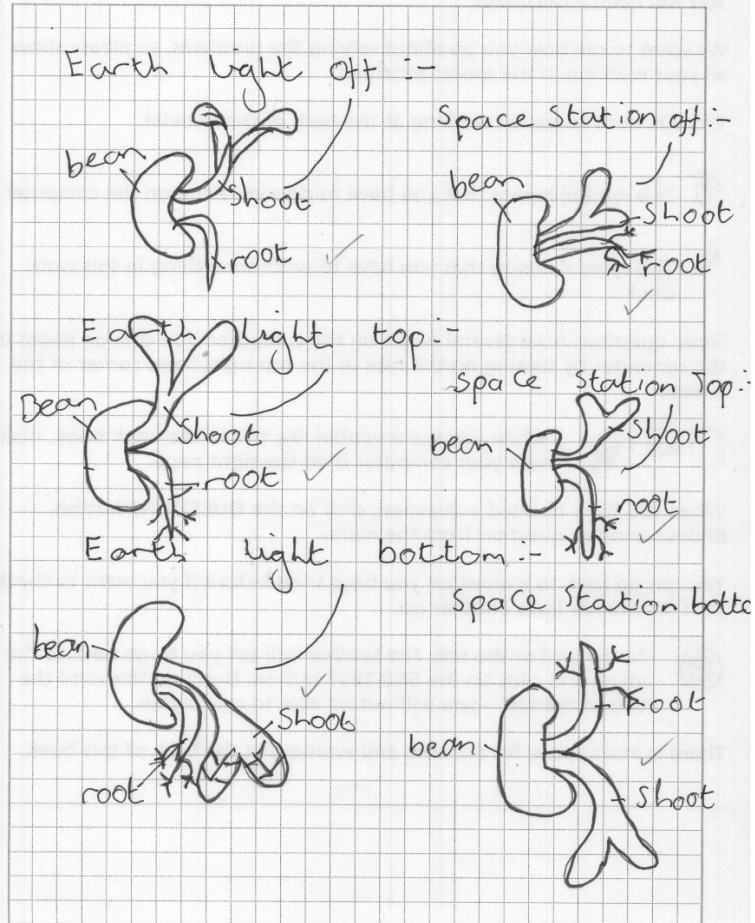 Earth Light Off :-
bean
Shoot
root
Space Station off:-
bean
Shoot
root
Earth light top:-
Bean
Shoot
root
Space Station Top:-
bean
Shoot
root
Earth light bottom:-
bean
Shoot
root
Space Station botto
root
bean
Shoot